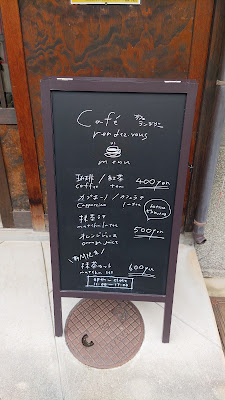 Café カフェ
ランデヴー
rendez.vous
menu
珈琲 / 紅茶 400yen
coffee tea
カプチーノ / カフェラテ
Cappuccino
抹茶ラテ
matcha latte 500yen
オレンジジュース
orange juice
抹茶セット 600yen
matcha set
open ~ close
11:00~17:00